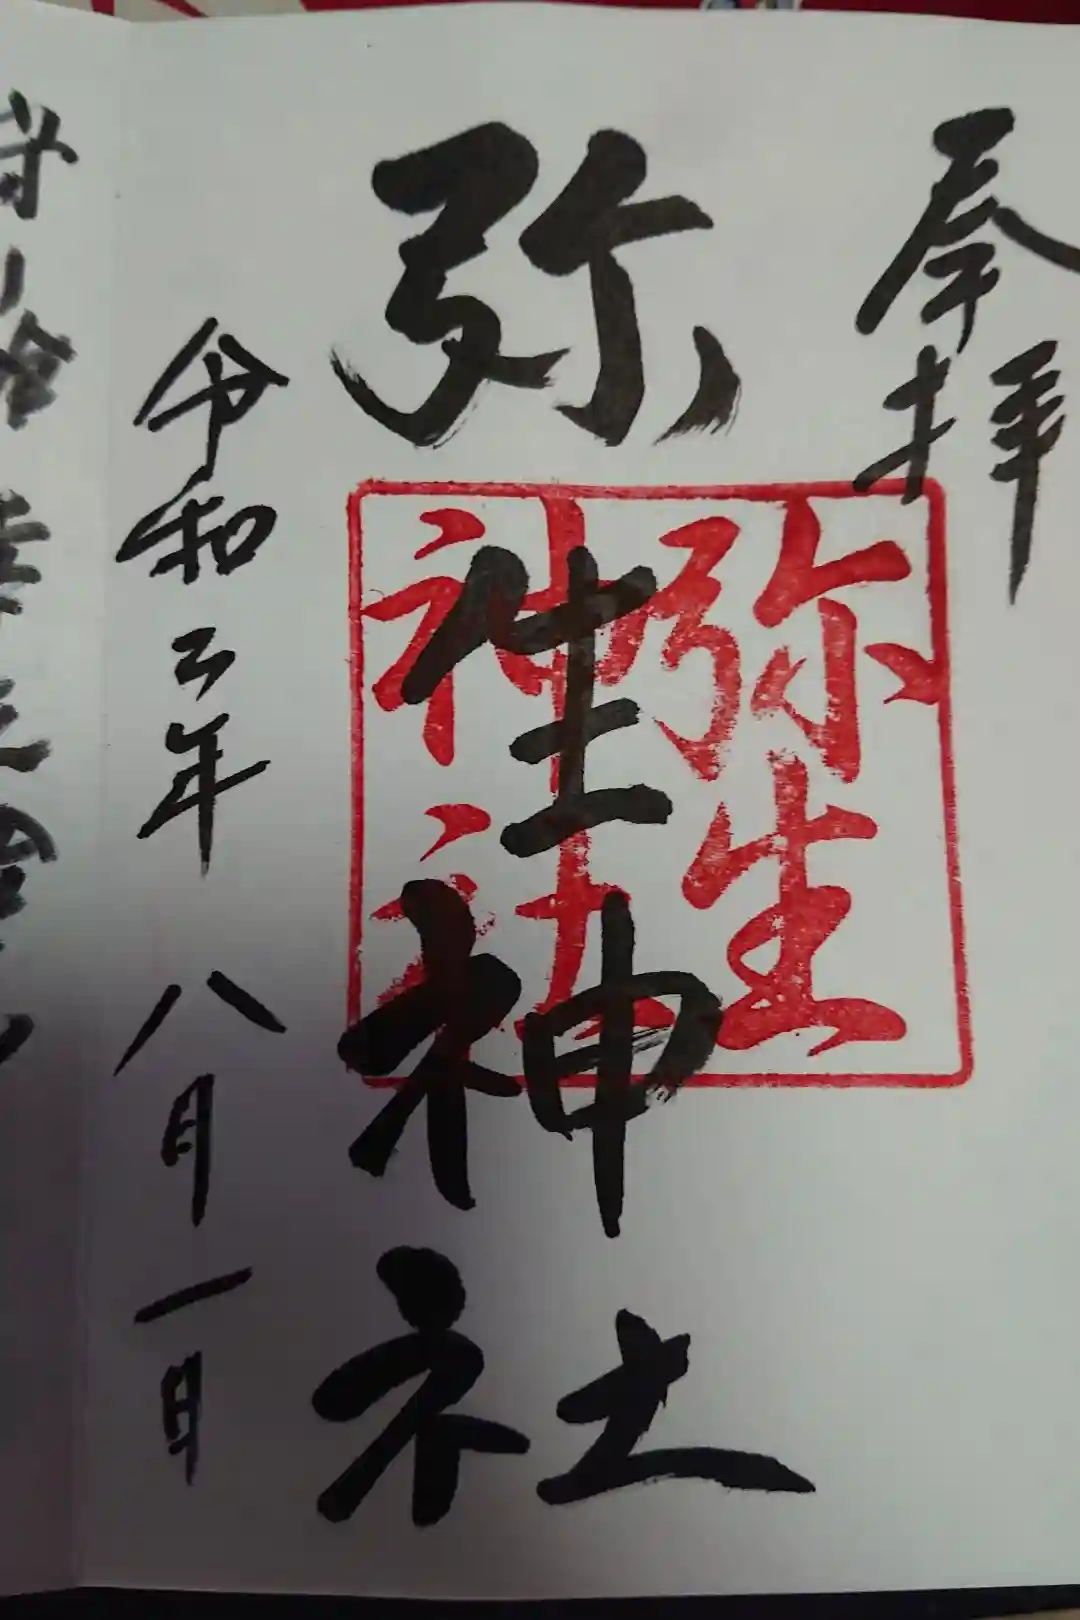 奉拝
弥生神社
弥生
神社
令和三年八月一日